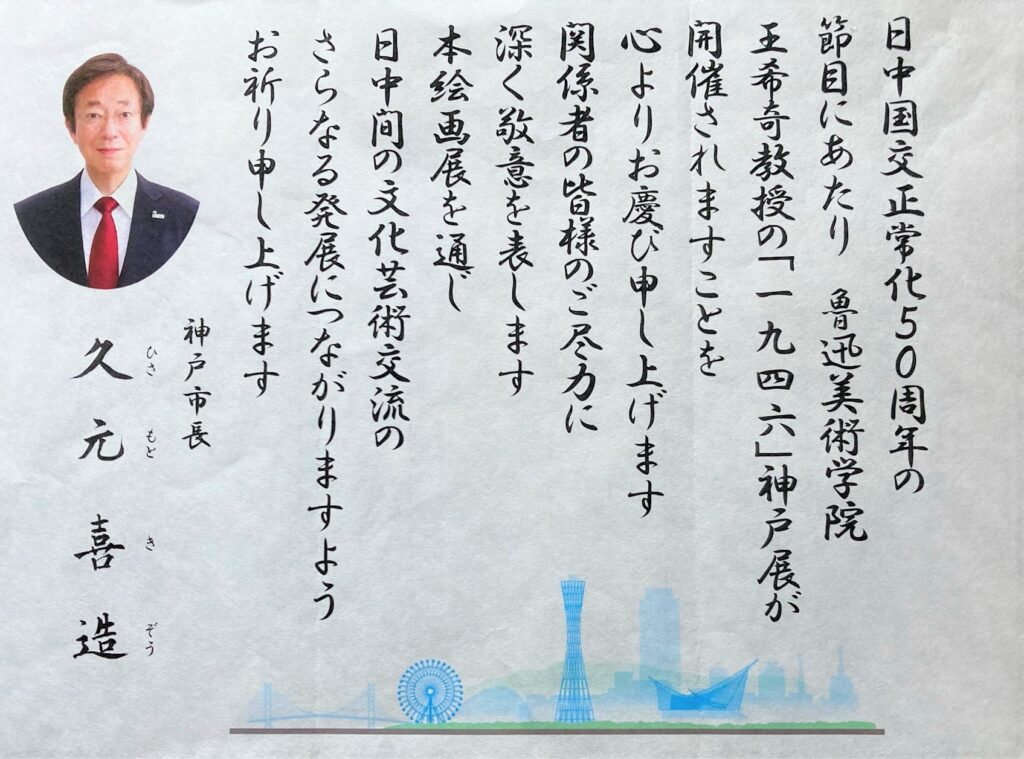 日中国交正常化50周年の
節目にあたり　魯迅美術学院
王希奇教授の「一九四六」神戸展が
開催されますことを
心よりお慶び申し上げます
関係者の皆様のご尽力に
深く敬意を表します
本絵画展を通じ
日中間の文化芸術交流の
さらなる発展につながりますよう
お祈り申し上げます
神戸市長
ひさ もと き ぞう
久元喜造